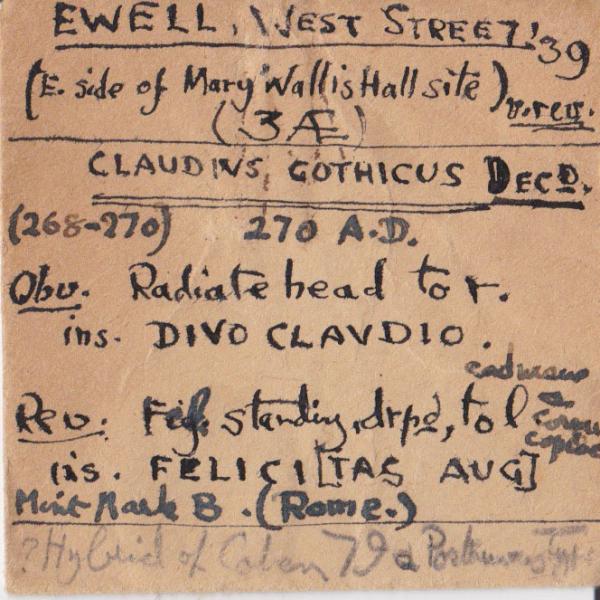 EWELL, WEST STREET, '39
(E. side of Mary Wallis Hall site) v. rev.
(3Æ)
CLAUDINS GOTHICUS DECD.
(268-270) 270 A.D.
Obv. Radiate head to r.
ins. DIVO CLAVDIO.
Rev. Fig. standing, drpd, to l
caduceus
cornu
copiae
ins. FELICI[TAS AUG]
Mint Mark B. (Rome.)
? Hybrid of Cohen 79 & Posthumous Type